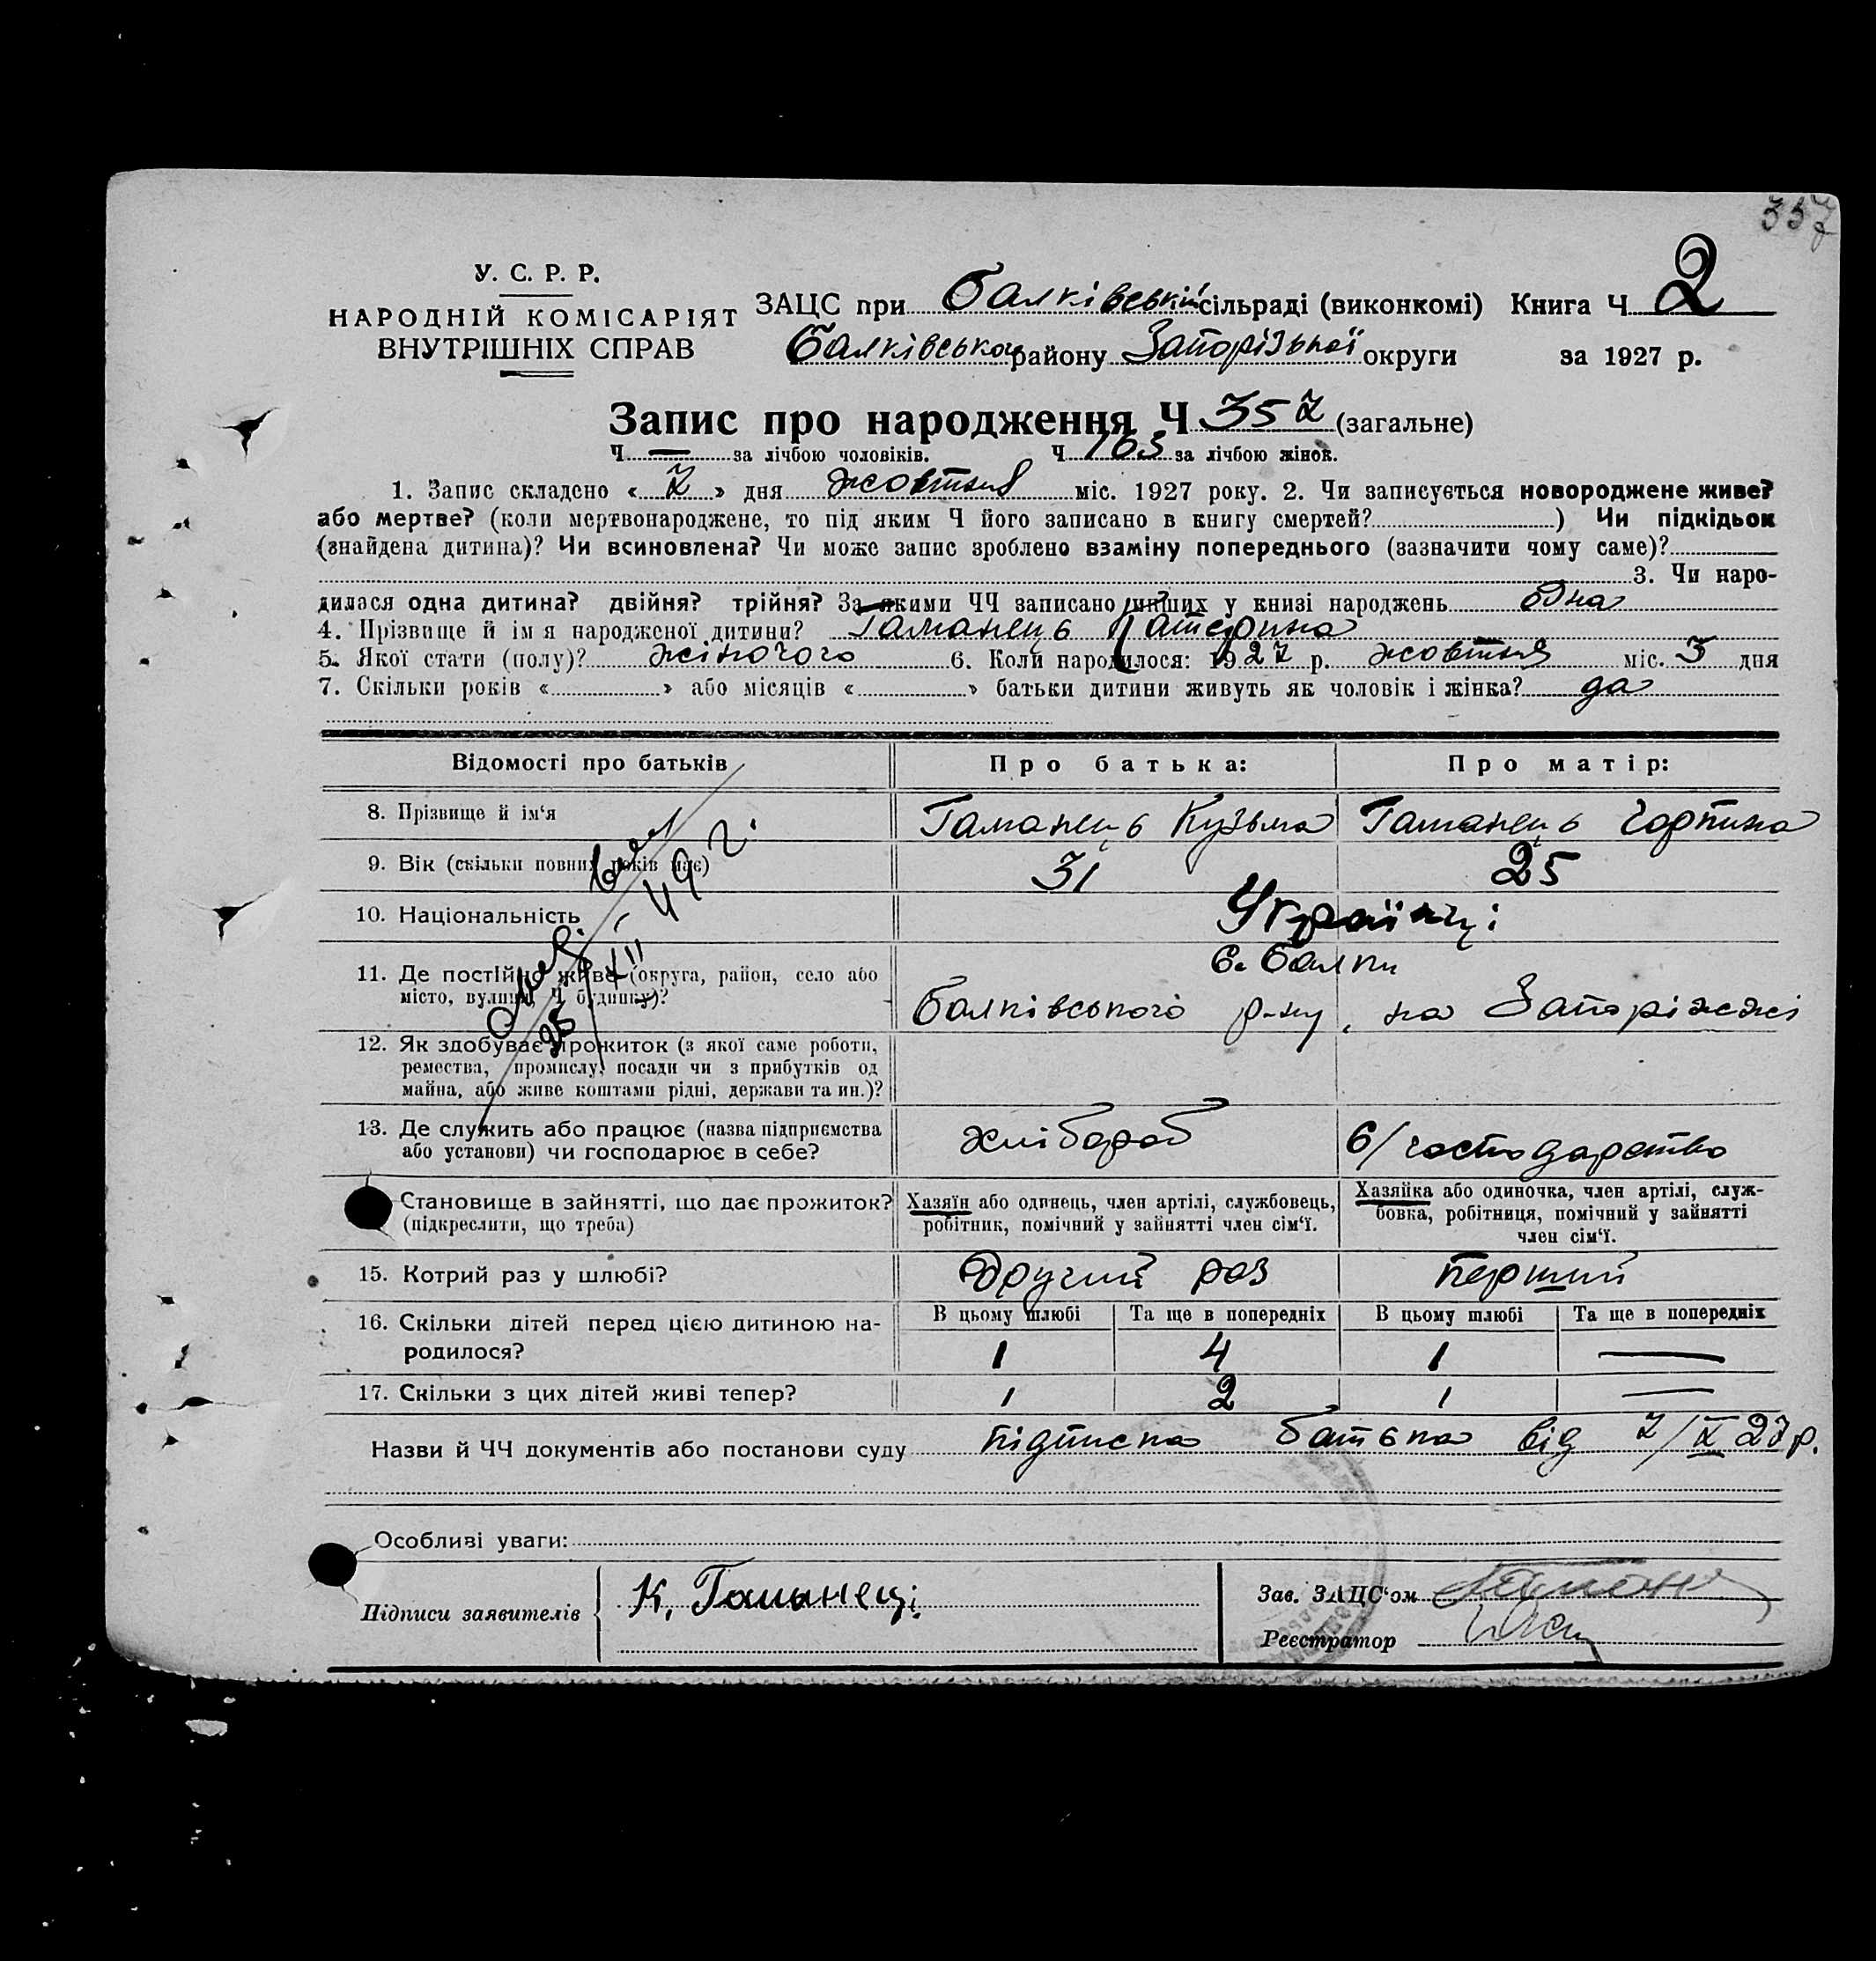 357
У. С. Р. Р.
НАРОДНІЙ КОМІСАРІЯТ
ВНУТРІШНІХ СПРАВ
ЗАЦС при Балківській сільраді (виконкомі) Книга Ч 2
Балківського району Запорізької округи за 1927 р.
Запис про народження Ч 357 (загальне)
Ч — за лічбою чоловіків. Ч 163 за лічбою жінок.
1. Запис складено « 7 » дня жовтня міс. 1927 року. 2. Чи записується новороджене живе?
або мертве? (коли мертвонароджене, то під яким Ч його записано в книгу смертей? ) Чи підкідьок
(знайдена дитина)? Чи всиновлена? Чи може запис зроблено взаміну попереднього (зазначити чому саме)?
3. Чи наро-
дилася одна дитина? двійня? трійня? За якими ЧЧ записано инших у книзі народжень одна
4. Прізвище й ім я народженої дитини? Гаманець Катерина
5. Якої стати (полу)? жіночого 6. Коли народилося: 1927 р. жовтня міс. 3 дня
7. Скільки років « » або місяців « » батьки дитини живуть як чоловік і жінка? да
Відомості про батьків Про батька: Про матір:
8. Прізвище й ім‘я Гаманець Кузьма Гаманець Горпина
9. Вік (скільки повних років має) 31 25
10. Національність Українці
с. Балки
11. Де постійно живе (округа, район, село або
місто, вулиця, Ч будинку)? Балківського р-ну, на Запоріжжі
25/XII - 49 г.
12. Як здобуває прожиток (з якої саме роботи,
ремества, промислу, посади чи з прибутків од
майна, або живе коштами рідні, держави та ин.)?
13. Де служить або працює (назва підприємства
або установи) чи господарює в себе? хлібороб б/господарство
Становище в зайнятті, що дає прожиток?
(підкреслити, що треба)
Хазяїн або одинець, член артілі, службовець,
робітник, помічний у зайнятті член сім‘ї.
Хазяйка або одиночка, член артілі, служ-
бовка, робітниця, помічний у зайнятті
член сім‘ї.
15. Котрий раз у шлюбі? Другий раз Перший
В цьому шлюбі Та ще в попередніх В цьому шлюбі Та ще в попередніх
16. Скільки дітей перед цією дитиною на-
родилося? 1 4 1 —
17. Скільки з цих дітей живі тепер? 1 2 1 —
Назви й ЧЧ документів або постанови суду підписка батька від 7/X 27 р.
Особливі уваги:
Підписи заявителів К. Гаманець
Зав. ЗАЦС‘ом
Реєстратор